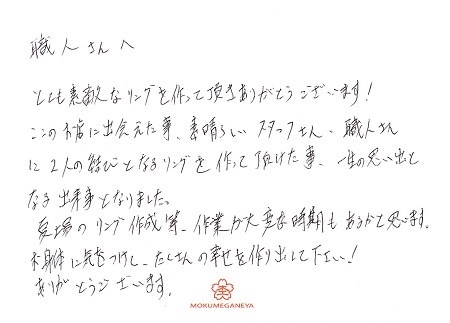 職人さんへ
とても素敵なリングを作って頂きありがとうございます!
この木目に出会えた事、素晴らしいスタッフさん、職人さん
に2人の結びとなるリングを作って頂けた事、一生の思い出と
なる出来事となりました。
夏場のリング作成等、作業が大変な時期もあるかと思います。
お身体に気をつけて、たくさんの幸せを作り出して下さい!
ありがとうございます。
MOKUMEGANEYA